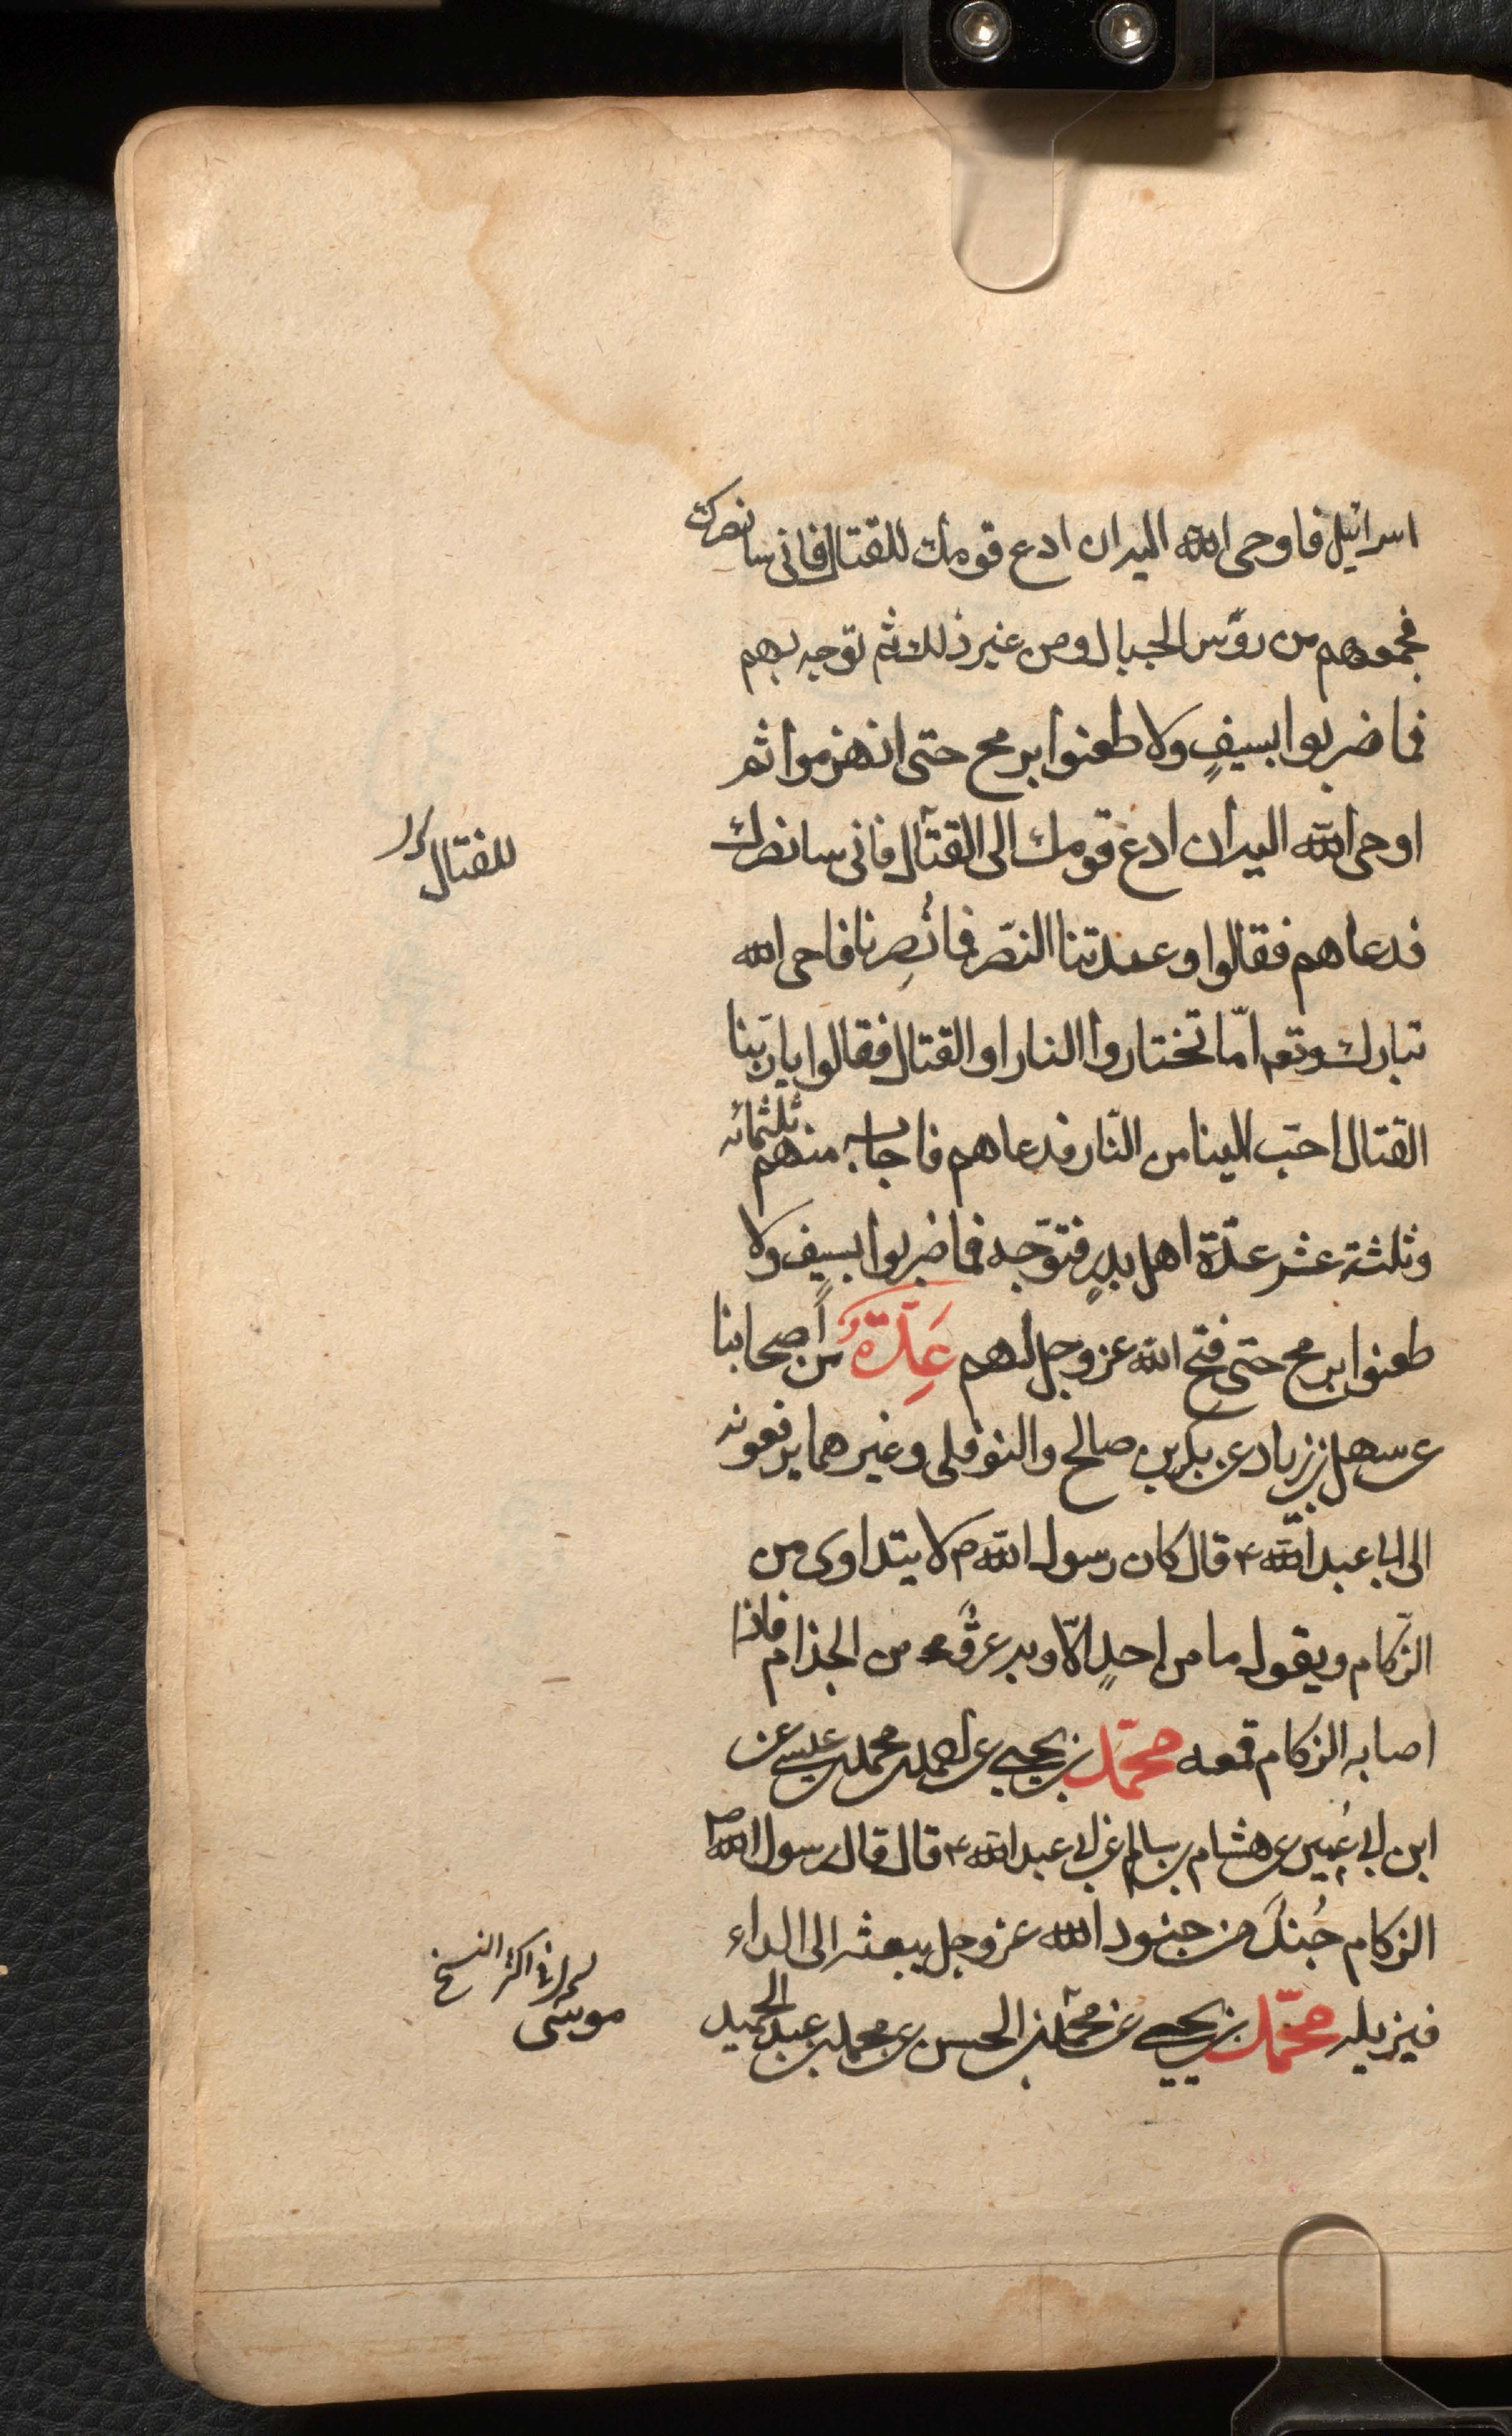 اسرائيل فاوحى الله اليه ان ادع قومك للقتال فانى سانصرك
فجمعهم من رؤس الجبال ومن غير ذلك ثم توجه بهم
فما ضربوا بسيفٍ ولا طعنوا برمح حتى انهزموا ثم
اوحى الله اليه ان ادع قومك الى القتال فانى سانصرك
للقتال
فدعاهم فقالوا وعدتنا النصر فما نُصِرنا فاحى الله
تبارك وتعـ امّا تختاروا النار او القتال فقالوا يا ربّنا
القتال احبّ الينا من النّار فدعاهم فاجابه منهم ثلثمائه
وثلثة عشر عدّة اهل بدرٍ فتوجّه فما ضربوا بسيفٍ ولا
طعنوا برمح حتى فتح الله عز وجل لهم عِدّةٌ من اصحابنا
عن سهل بن زياد عن بكر بن صالح والنوفلى وغيرهما يرفعونه
الى ابى عبد الله ع قال كان رسول الله ص لا يتداوى من
الزّكام ويقول ما من احدٍ الّا وبه عرقٌ من الجذام فاذا
اصابه الزكام قمعه محمّد بن يحيى عن احمد بن محمد بن عيسى عن
ابن ابى عُمير عن هشام بن سالم عن ابى عبد الله ع قال قال رسول الله ص
الزكام جُندٌ من جنود الله عز وجل يبعثه الى الداء
فيزيله محمّد بن يحيى عن محمّد بن الحسن عن محمد بن عبد الحميد
موسى
فى اكثر النسخ